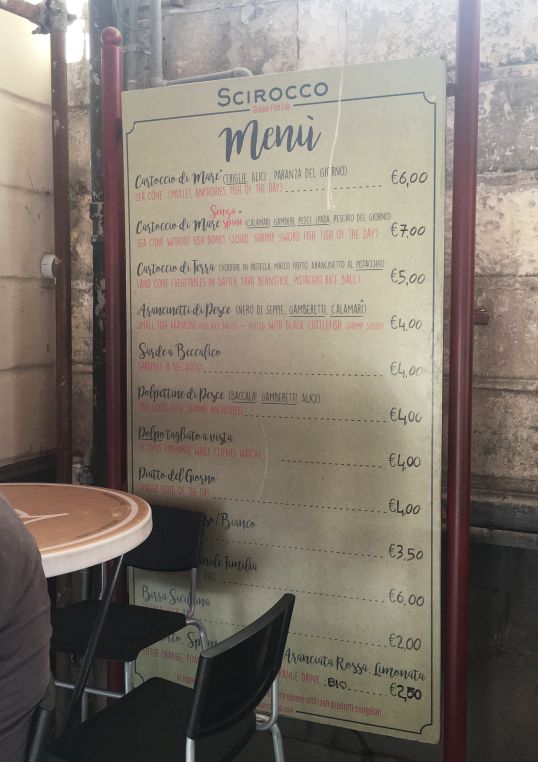 SCIROCCO
Sicilian Fish Lab
Menù
Cartoccio di Mare* (TRIGLIE, ALICI, PARANZA DEL GIORNO)
SEA CONE (MULLET, ANCHOVIES, FISH OF THE DAY) €6,00
Senza
Cartoccio di Mare spine* (CALAMARI, GAMBERI, PESCE SPADA, PESCATO DEL GIORNO)
SEA CONE WITHOUT FISH BONES (SQUID, SHRIMP, SWORD FISH, FISH OF THE DAY) €7,00
Cartoccio di Terra (VERDURE IN PASTELLA, MACCO FRITTO, ARANCINETTO AL PISTACCHIO)
LAND CONE (VEGETABLES IN BATTER, FAVA BEANSTICK, PISTACHIO RICE BALL) €5,00
Arancinetti di Pesce (NERO DI SEPPIE, GAMBERETTI, CALAMARI*)
SMALL FISH ARANCINI (FISH RICE BALLS) - FILLED WITH BLACK CUTTLEFISH, SHRIMP, SQUID €4,00
Sarde a Beccafico
SARDINES A BECCAFICO €4,00
Polpettine di Pesce (BACCALA', GAMBERETTI, ALICI)
SHRIMP, ANCHOVIES) €4,00
Polpo tagliato a vista
OCTOPUS (PREPARED WHILE CLIENTS WATCH) €4,00
Piatto del Giorno
FINGER FOOD OF THE DAY €4,00
/Bianco
€3,50
Tumilia
33CL €6,00
Birra Siciliana
€2,00
Aranciata Rossa, Limonata
ORANGE, DRINK BIO €2,50
essere utilizzati prodotti congelati